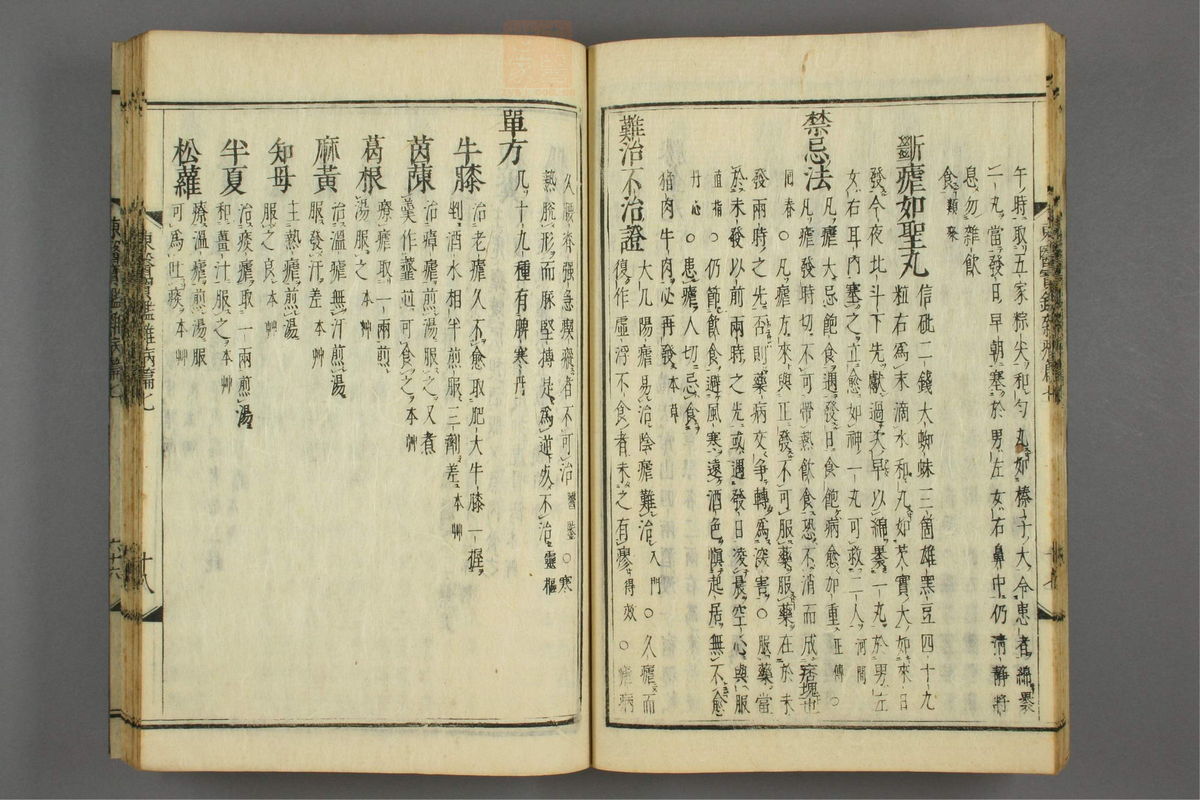 午時取五家粽尖和勻丸如榛子大令患者綿裹
一丸當發日早朝塞於男左女右鼻中仍淸靜將
息勿雜飮
食類聚
斷瘧如聖丸
信砒二錢大蜘蛛三箇雄黑豆四十九
粒右爲末滴水和丸如芡實大如來日
發今夜北斗下先獻過次早以綿裹一丸於男左
女右耳內塞之立愈如神一丸可救二人河間
禁忌法
凡瘧大忌飽食遇發日食飽病愈加重正傳
○凡瘧發時切不可帶熱飮食恐不消而成痞塊也
回春○凡瘧方來與正發不可服藥服藥在於未
發兩時之先否則藥病交爭轉爲深害○服藥當
於未發以前兩時之先或遇發日淩晨空心與服
直指○仍節飮食避風寒遠酒色愼起居無不愈
丹心○患瘧人切忌食
猪肉牛肉必再發本草
難治不治證
大凡陽瘧易治陰瘧難治入門○久瘧而
復作虛浮不食者未之有瘳得效○瘧病
久腰脊强急瘈瘲者不可治醫鑒○寒
熱脫形而脉堅搏是爲逆疢不治靈樞
單方
凡十九種有脾寒丹
牛膝
治老瘧久不愈取肥大牛膝一握
剉酒水相半煎服三劑差本艸
茵蔯
治瘴瘧煎湯服之又煮
羹作虀並可食之本艸
葛根
療瘧取一兩煎
湯服之本艸
麻黃
治溫瘧無汗煎湯
服發汗差本艸
知母
主熱瘧煎湯
服之良本艸
半夏
治痰瘧取一兩煎湯
和薑汁服之本艸
松蘿
療溫瘧煎湯服
可爲吐痰本艸
東醫寶鑑雜病篇七
十八